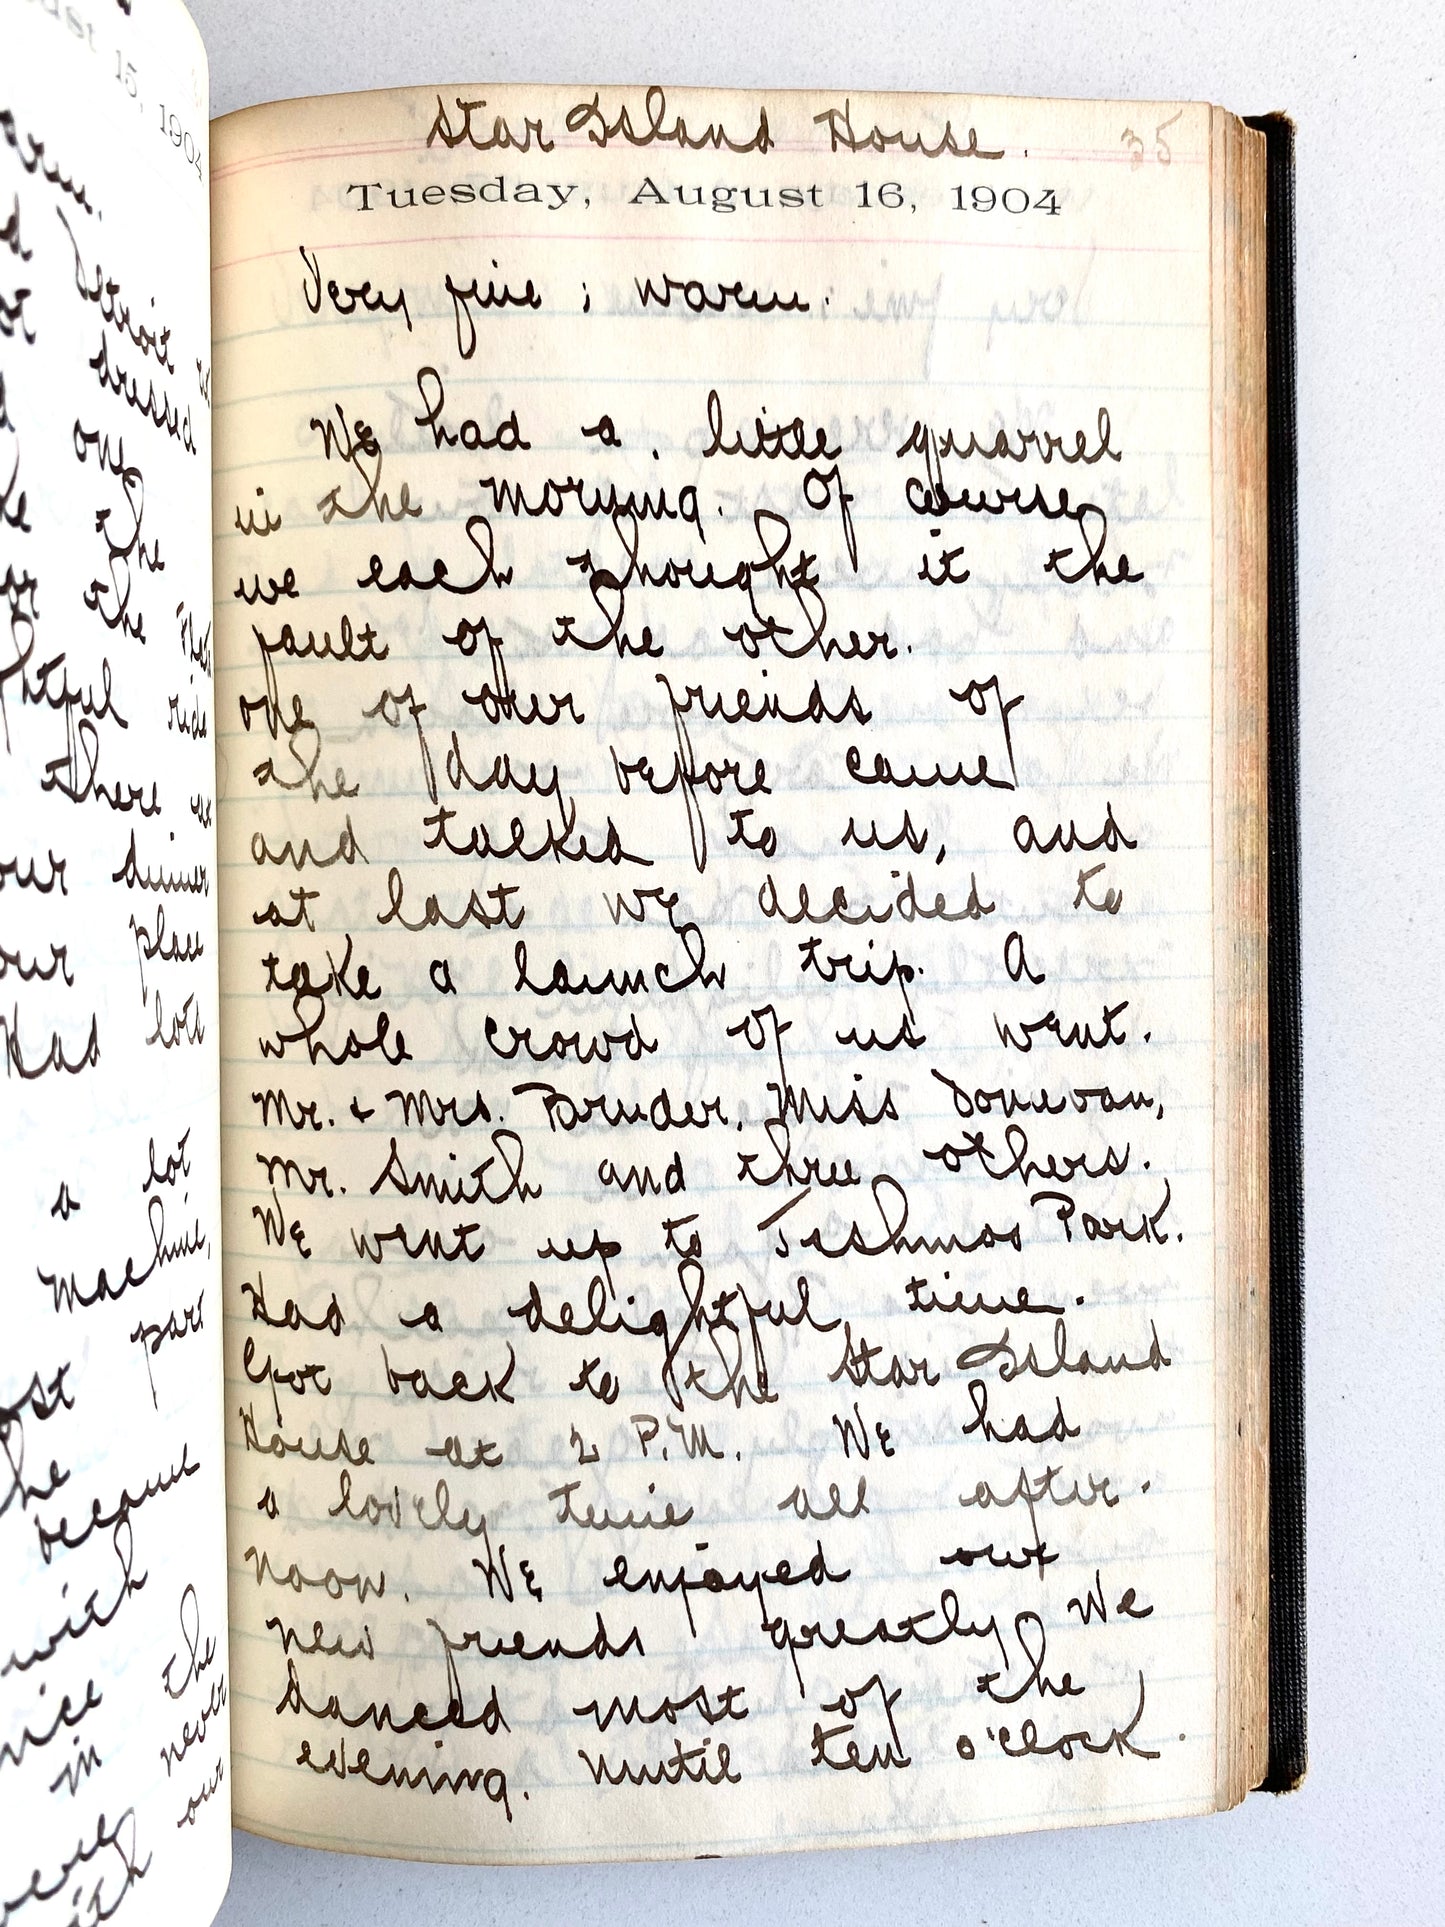 Star Island House.
35
Tuesday, August 16, 1904
Very fine; warm.
We had a little quarrel
in the morning. Of course
we each thought it the
fault of the other.
one of our friends of
the day before came
and talked to us, and
at last we decided to
take a launch trip. A
whole crowd of us went.
Mr. & Mrs. Bruder, Miss Donevan,
Mr. Smith and three others.
We went up to Tashmoo Park.
Had a delightful time.
Got back to the Star Island
House at 2 P.M. We had
a lovely time all after-
noon. We enjoyed our
new friends greatly We
danced most of the
evening. until ten o'clock.
15, 1904
Detroit
dressed
one
the
the Flats
ride
there
our dinner
our place
Had lots
a lot
machine,
part
he
because
with
nice the
in never
our